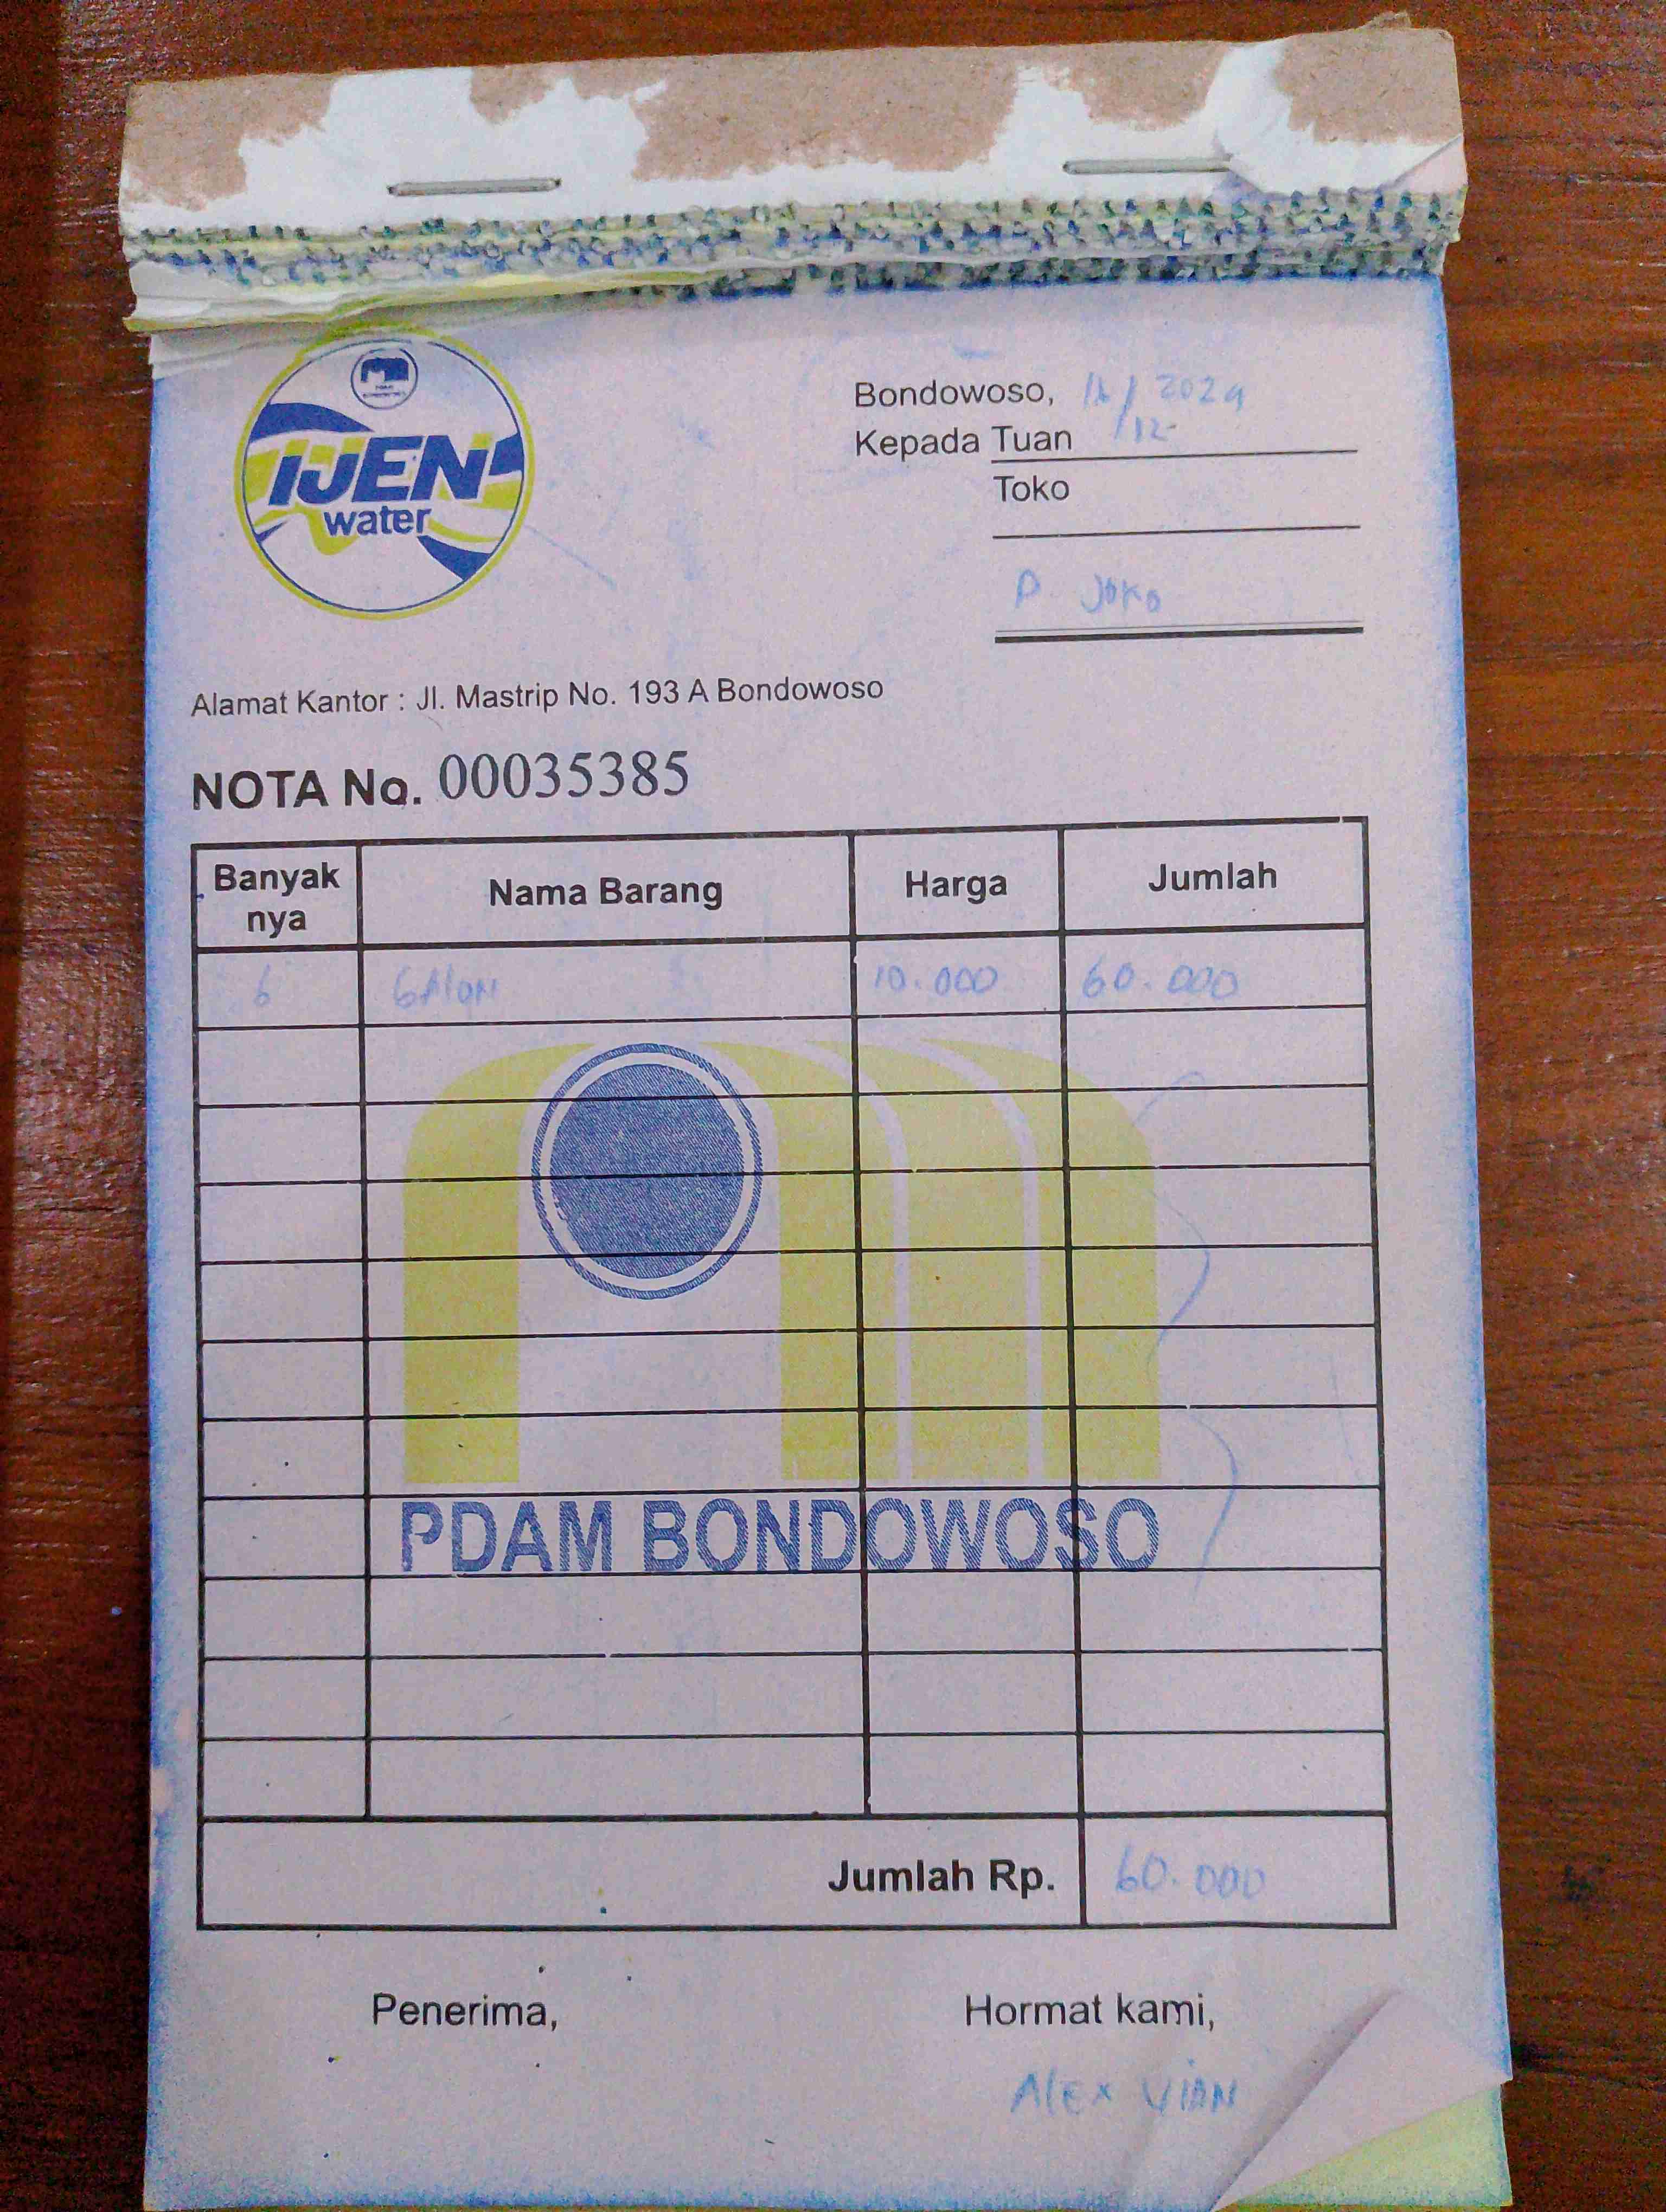 IJEN
water
Bondowoso, / 2024
/12
Kepada Tuan
Toko
P. Joko
Alamat Kantor : Jl. Mastrip No. 193 A Bondowoso
NOTA No. 00035385
Banyak nya Nama Barang Harga Jumlah
6 GAlON 10.000 60.000
PDAM BONDOWOSO
Jumlah Rp. 60.000
Penerima, Hormat kami,
Alex VIAN